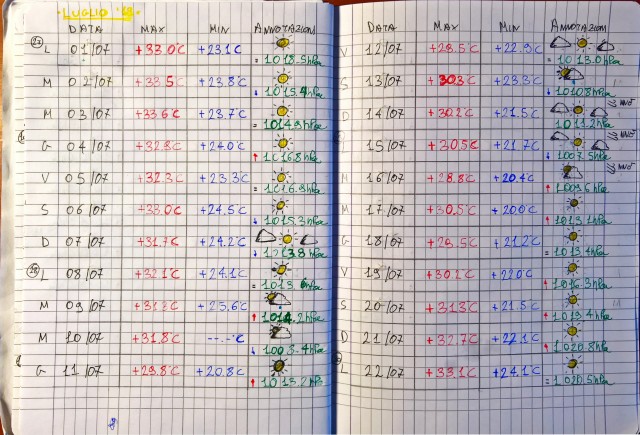 LUGLIO '19
DATA MAX MIN ANNOTAZIONI
27 L 01/07 +33.0°C +23.1°C
= 1018.5hPa
M 02/07 +33.5°C +23.8°C
↓ 1015.4hPa
M 03/07 +33.6°C +23.7°C
1014.3hPa
G 04/07 +32.8°C +24.0°C
↑ 1016.8hPa
V 05/07 +32.3°C +23.3°C
= 1016.8hPa
S 06/07 +33.0°C +24.5°C
↓ 1015.3hPa
D 07/07 +31.7°C +24.2°C
↓ 1013.8hPa
28 L 08/07 +32.1°C +24.1°C
= 1013. hPa
M 09/07 +31. °C +23.6°C
↑ 1014.2hPa
M 10/07 +31.8°C --.-°C
↓ 1008.4hPa
G 11/07 +29.8°C +20.8°C
↑ 1013.2hPa
8
DATA MAX MIN ANNOTAZIONI
V 12/07 +28.5°C +22.9°C
= 1013.0hPa
S 13/07 +30.3°C +23.3°C
↓ 1010.8hPa
D 14/07 +30.2°C +21.5°C
1011.2hPa
L 15/07 +30.5°C +21.7°C
↓ 1007.5hPa
M 16/07 +28.8°C +20.4°C
↑ 1009.6hPa
M 17/07 +30.5°C +20.0°C
↑ 1013.1hPa
G 18/07 +29.5°C +21.2°C
= 1013.4hPa
V 19/07 +30.2°C +22.0°C
↑ 1016.3hPa
S 20/07 +31.3°C +21.5°C
↑ 1019.4hPa
D 21/07 +32.7°C +22.1°C
↑ 1020.8hPa
L 22/07 +33.1°C +24.1°C
= 1020.5hPa